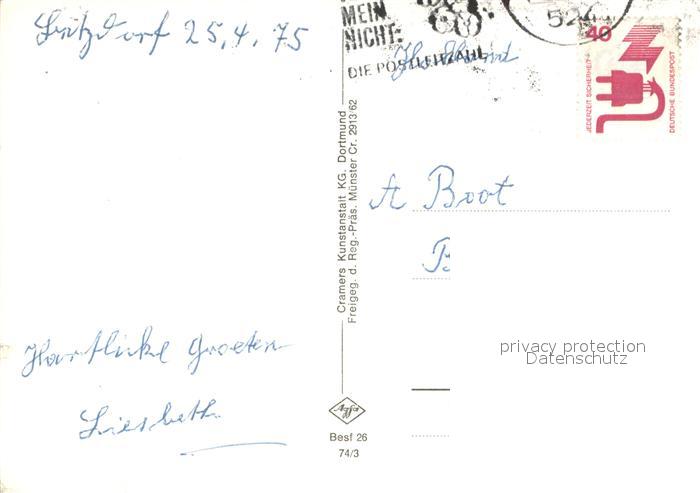 Lützdorf 25,4,75
MEIN
NICHT:
DIE POSTLEITZAHL
52
Holland
40
JEDERZEIT SICHERHEIT
DEUTSCHE BUNDESPOST
Cramers Kunstanstalt KG. Dortmund
Freigeg. d. Reg.-Präs. Münster Cr. 2913/62
A Boot
B
privacy protection
Datenschutz
Hartlicke groeten
Liesbeth
Agfa
Besf 26
74/3